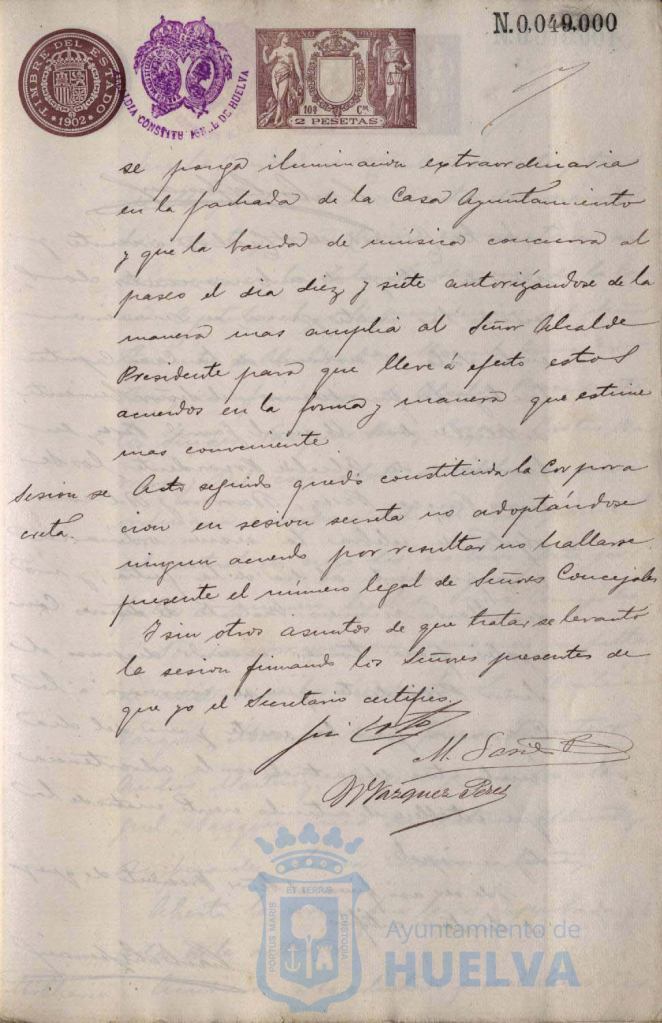 N.0,049.000
TIMBRE DEL ESTADO
1902
ALDIA CONSTITUCIONAL DE HUELVA
AÑO 1902
10ª Cse
2 PESETAS
se ponga iluminacion extraordinaria
en la fachada de la Casa Ayuntamiento
y que la banda de música concurra al
paseo el dia diez y siete autorizándose de la
manera mas amplia al Señor Alcalde
Presidente para que lleve á efecto estos
acuerdos en la forma y manera que estime
mas conveniente
Sesion se
creta.
Acto seguido quedó constituida la Corpora
cion en sesion secreta no adoptándose
ningun acuerdo por resultar no hallarse
presente el número legal de Señores Concejales
Y sin otros asuntos de que tratar se levantó
la sesion firmando los Señores presentes de
que yo el Secretario certifico.
M.
Vazquez Perez
ET TERRAE
PORTUS MARIS
CUSTODIA
Ayuntamiento de
HUELVA